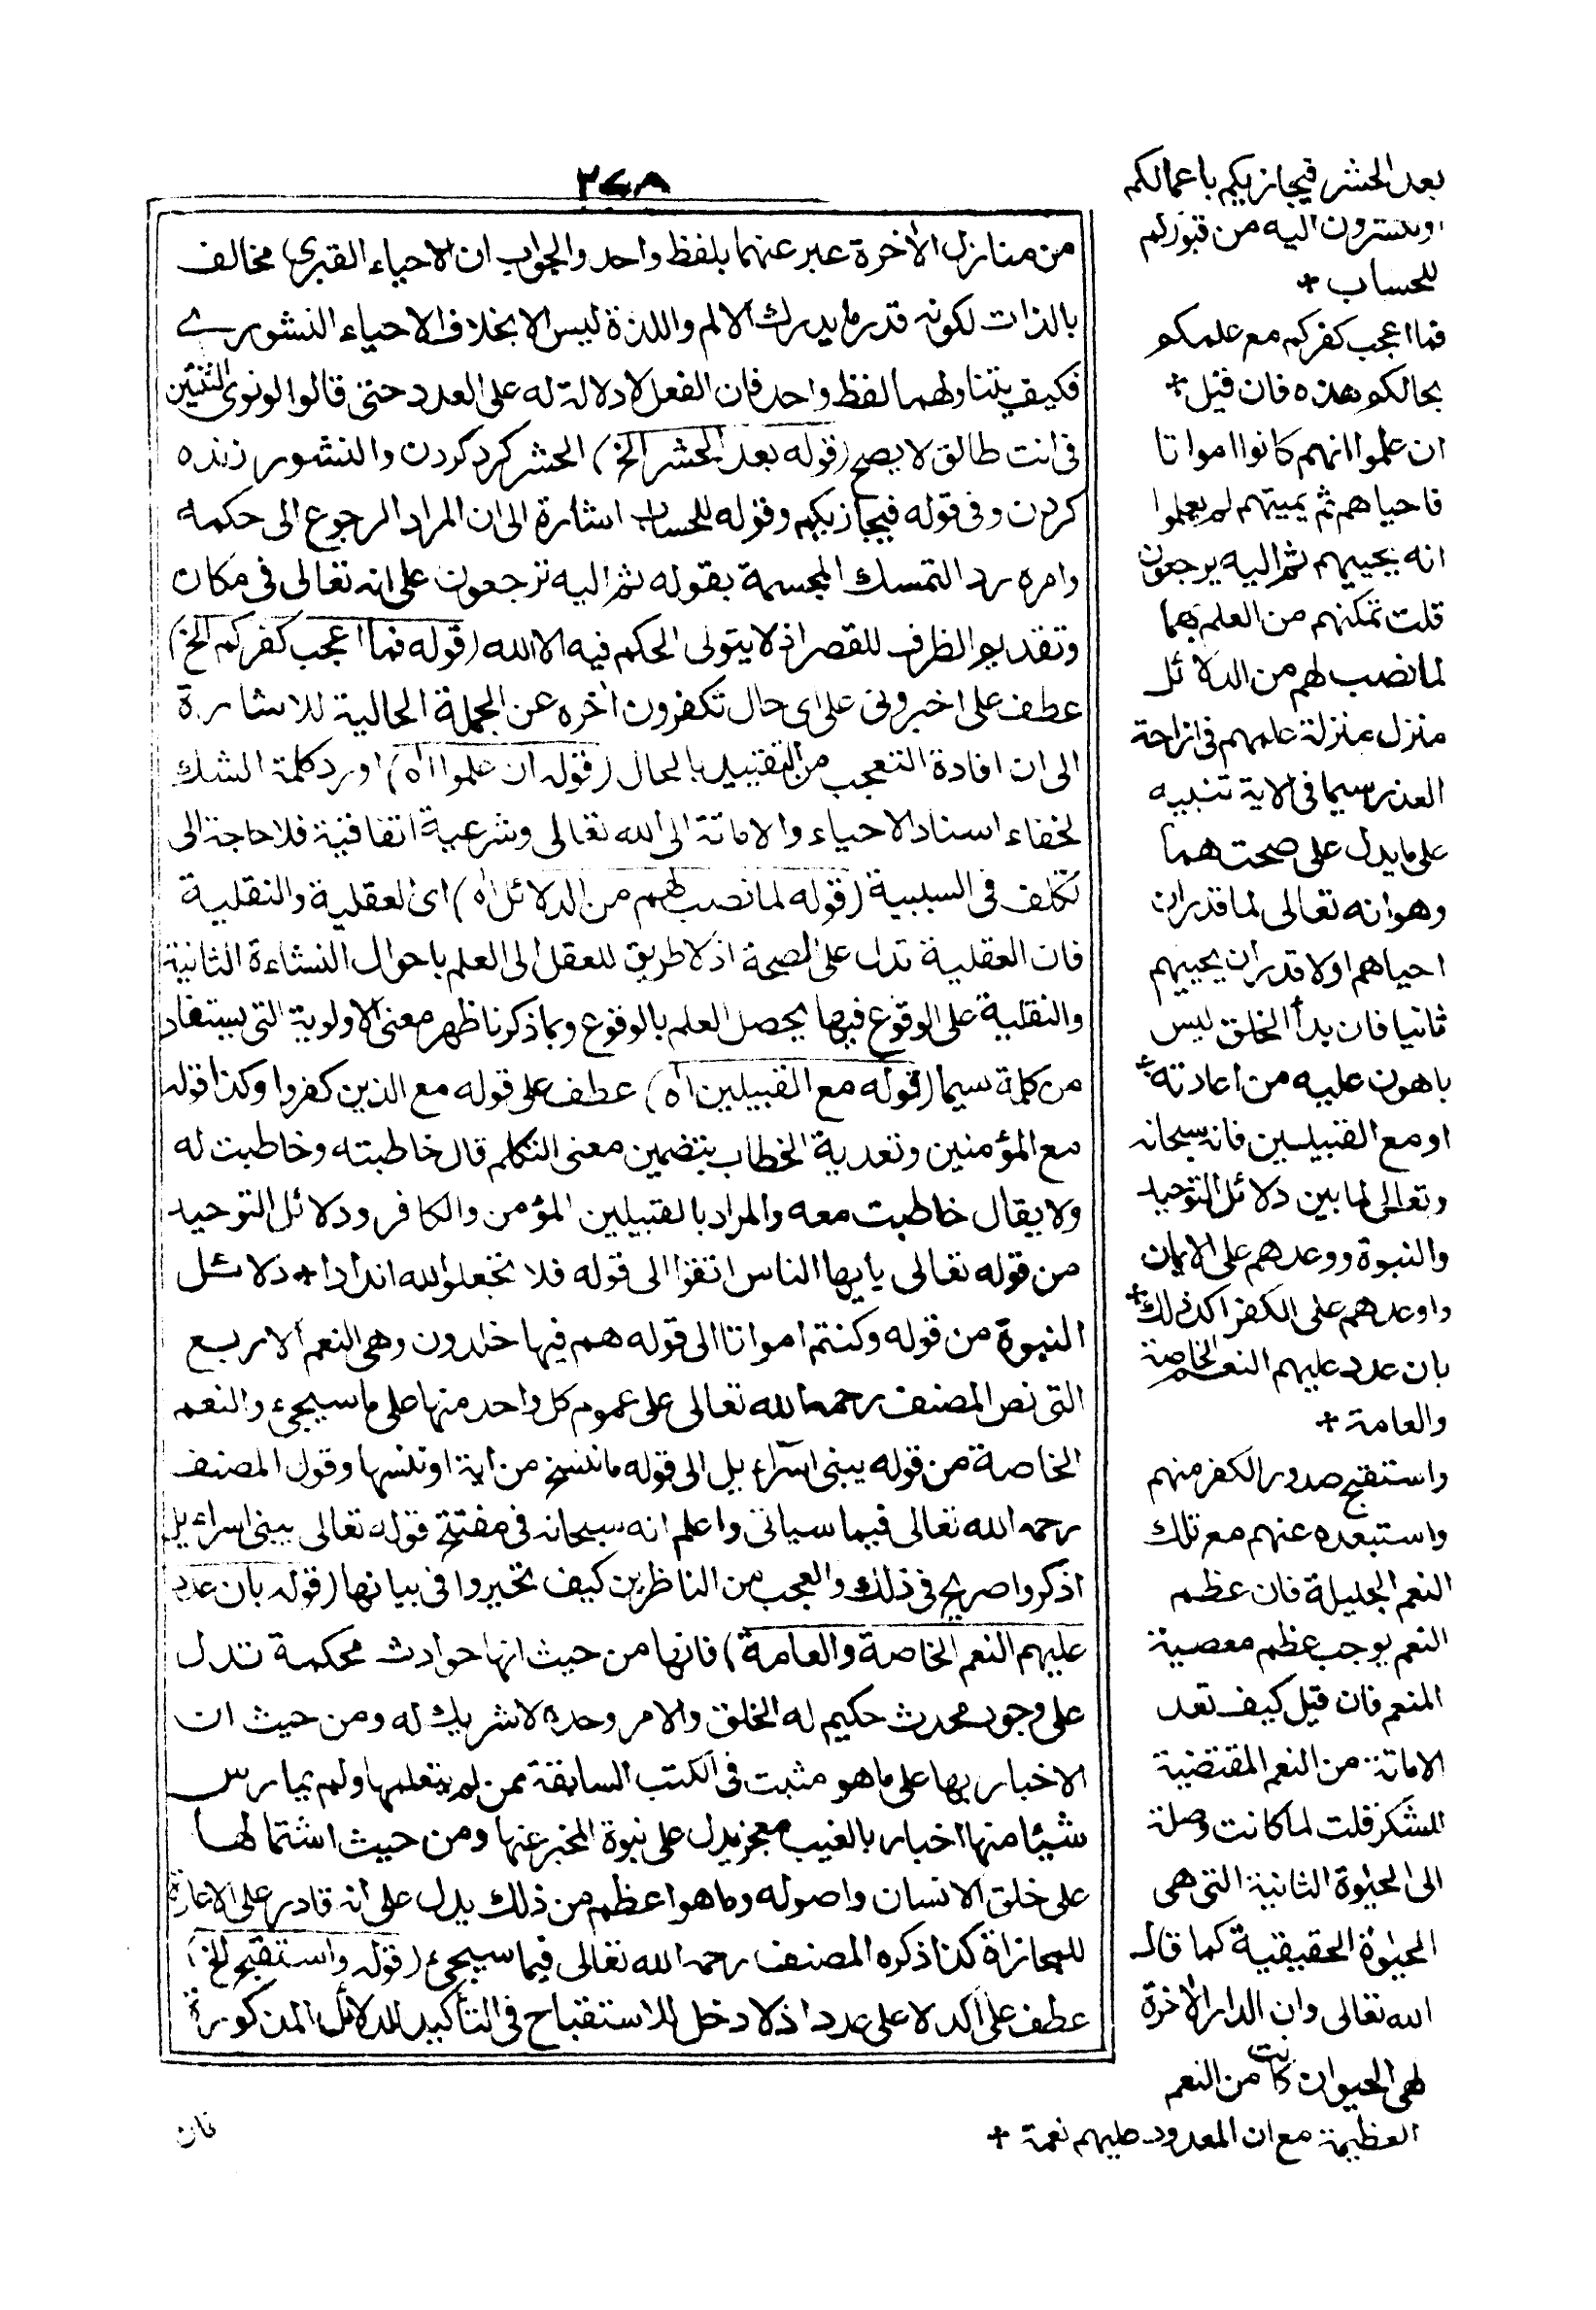 ٣٧٨
من منازل الأخرة عبر عنهما بلفظ واحد والجواب ان الاحياء القبرى مخالف
بالذات لكونه قدر ما يدرك الالم واللذة ليس الا بخلاف الاحياء النشورے
فكيف يتناولهما لفظ واحد فان الفعل لا دلالة له على العدد حتى قالوا لو نوى الثنتين
فى انت طالق لا يصح (قوله بعد الحشر الخ) الحشر كرد كردن والنشور زنده
كردن وفى قوله فيجازيكم وقوله للحساب اشارة الى ان المراد الرجوع الى حكمه
وامره رد التمسك المجسمة بقوله ثم اليه ترجعون على انه تعالى فى مكان
وتقديم الظرف للقصر اذ لا يتولى الحكم فيه الا الله (قوله فما اعجب كفركم الخ)
عطف على اخبرونى على اى حال تكفرون اخره عن الجملة الحالية للاشارة
الى ان افادة التعجب من التقييد بالحال (قوله ان علموا اه) اورد كلمة الشك
لخفاء اسناد الاحياء والاماتة الى الله تعالى وشرعية اتفاقية فلا حاجة الى
تكلف فى السببية (قوله لما نصب لهم من الدلائل اه) اى العقلية والنقلية
فان العقلية تدل على الصحة اذ لا طريق للعقل الى العلم باحوال النشاءة الثانية
والنقلية على الوقوع فبها يحصل العلم بالوقوع وبما ذكرنا ظهر معنى الاولوية التى يستفاد
من كلمة سيما (قوله مع القبيلين اه) عطف على قوله مع الذين كفروا وكذا قوله
مع المؤمنين وتعدية الخطاب بتضمين معنى التكلم قال خاطبته وخاطبت له
ولا يقال خاطبت معه والمراد بالقبيلين المؤمن والكافر ودلائل التوحيد
من قوله تعالى يأيها الناس اتقوا الى قوله فلا تجعلوا لله اندادا + دلائل
النبوة من قوله وكنتم امواتا الى قوله هم فيها خلدون وهى النعم الاربع
التى نص المصنف رحمه الله تعالى على عموم كل واحد منها على ما سيجىء والنعم
الخاصة من قوله يبنى اسراءيل الى قوله ما ننسخ من اية او ننسها وقول المصنف
رحمه الله تعالى فيما سياتى واعلم انه سبحانه فى مفتتح قوله تعالى يبنى اسراءيل
اذكروا صريح فى ذلك والعجب من الناظرين كيف تخيروا فى بيانها (قوله بان عدد
عليهم النعم الخاصة والعامة) فانها من حيث انها حوادث محكمة تدل
على وجود محدث حكيم له الخلق والامر وحده لا شريك له ومن حيث ان
الاخبار بها على ما هو مثبت فى الكتب السابقة ممن لم يتعلمها ولم يمارس
شيئا منها اخبار بالغيب معجز يدل على نبوة المخبر عنها ومن حيث اشتمالها
على خلق الانسان واصوله وما هو اعظم من ذلك يدل على انه قادر على الاعادة
للمجازاة كذا ذكره المصنف رحمه الله تعالى فيما سيجىء (قوله واستقبح الخ)
عطف على اكد لا على عدد اذ لا دخل للاستقباح فى التأكيد للدلائل المذكورة
فان
بعد الحشر فيجازيكم باعمالكم
او تنشرون اليه من قبوركم
للحساب +
فما اعجب كفركم مع علمكم
بحالكم هذه فان قيل +
ان علموا انهم كانوا امواتا
فاحياهم ثم يميتهم لم يعلموا
انه يحييهم ثم اليه يرجعون
قلت تمكنهم من العلم بهما
لما نصب لهم من الدلائل
منزل منزلة علمهم فى ازاحة
العذر سيما فى الاية تنبيه
على ما يدل على صحتهما
وهو انه تعالى لما قدر ان
احياهم اولا قدر ان يحييهم
ثانيا فان بدأ الخلق ليس
باهون عليه من اعادته +
او مع القبيلين فانه سبحانه
وتعالى لما بين دلائل التوحيد
والنبوة ووعدهم على الايمان
واوعدهم على الكفر اكد ذلك +
بان عدد عليهم النعم الخاصة
والعامة +
واستقبح صدور الكفر منهم
واستبعده عنهم مع تلك
النعم الجليلة فان عظم
النعم يوجب عظم معصية
المنعم فان قيل كيف تعد
الاماتة من النعم المقتضية
للشكر قلت لما كانت وصلة
الى الحيوة الثانية التى هى
الحيوة الحقيقية كما قال
الله تعالى وان الدار الاخرة
لهى الحيوان كانت من النعم
العظيمة مع ان المعدود عليهم نعمة +